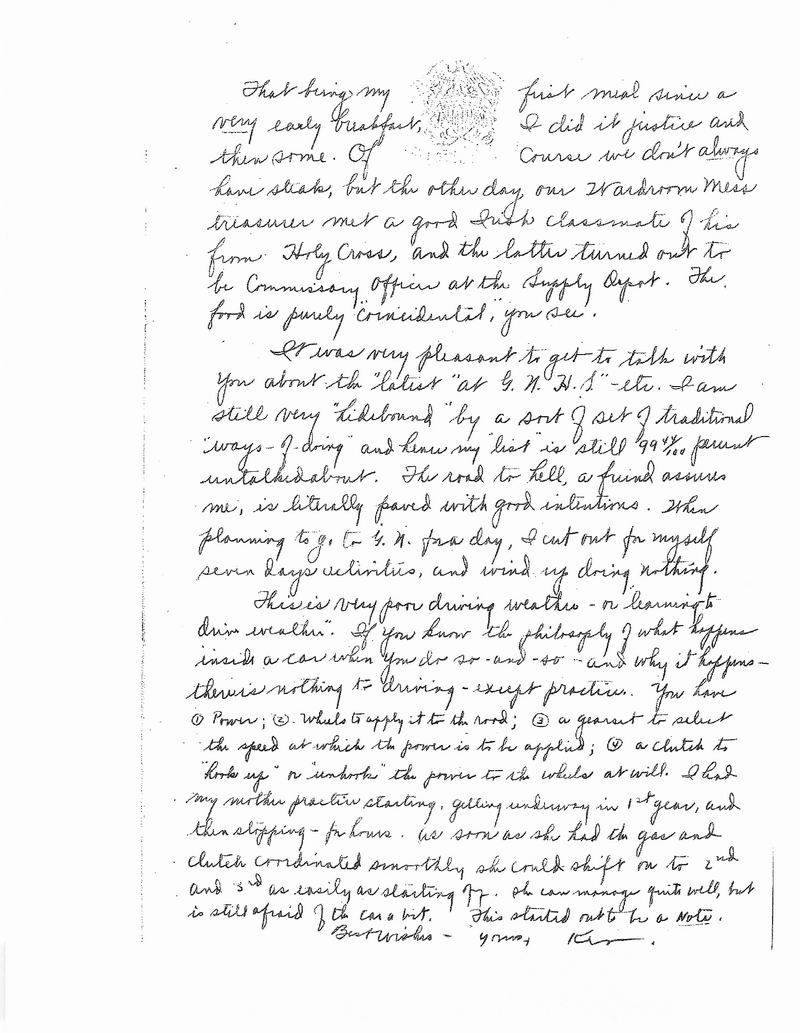 That being my first meal since a
very early breakfast, I did it justice and
then some. Of Course we don't always
have steak, but the other day our Wardroom Mess
treasurer met a good Irish classmate of his
from Holy Cross, and the latter turned out to
be Commissary Officer at the Supply Depot. The
food is purely "coincidental", you see.
It was very pleasant to get to talk with
you about the "latest" at G. N. H. S" - etc. I am
still very "hidebound" by a sort of set of traditional
"ways-of-doing" and hence my "list" is still 99 44/100 percent
untalkedabout. The road to hell, a friend assures
me, is literally paved with good intentions. When
planning to go to G. N. for a day, I cut out for myself
seven days activities, and wind up doing nothing.
This is very poor driving weather - or "learning to
drive weather". If you know the philosophy of what happens
inside a car when you do so-and-so - and why it happens -
there is nothing to driving - except practice. You have
① Power; ②. Wheels to apply it to the road; ③ a gearset to select
the speed at which the power is to be applied; ④ a clutch to
"hook up" or "unhook" the power to the wheels at will. I had
my mother practice starting, getting underway in 1st gear, and
then stopping - for hours. As soon as she had the gas and
clutch coordinated smoothly she could shift on to 2nd
and 3rd as easily as starting off. She can manage quite well, but
is still afraid of the car a bit. This started out to be a Note.
Best Wishes - Yours,